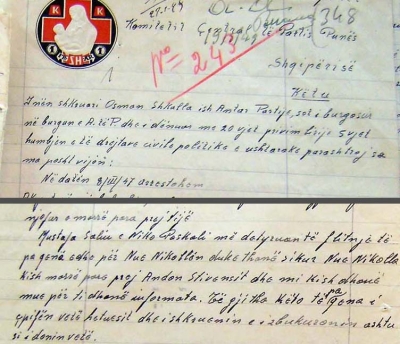 K K
1 QeSHSH 1
348
Komitetit Qendror të Partis Punës
No = 243
Shqipërisë
Këtu
I nën shkruari Osman Shkalla ish Antar Partije, sot i burgosur
në burgun e A. të P. dhe i dënuar me 20 vjet privim lirije 5 vjet
humbjen e të drejtave civile politike e ushtarake parashtroj sa
ma posht vijon:
Në datën 8/III/47 arrestohem
e morë para prej tijë
Mustafa Saliu e Niko Paskali më detyruan të flitnje të
pa gená edhe për Nue Nikollën duke thanë sikur Nue Nikolla
kish morrë para prej Andon Stivensit dhe mi kish dhanë
mue për ti dhanë informata. Të gjitha këto të pa gena i
epifën vetë hetuesit dhe i shkruenin e i zbukuronin ashtu
si i donin vetë.